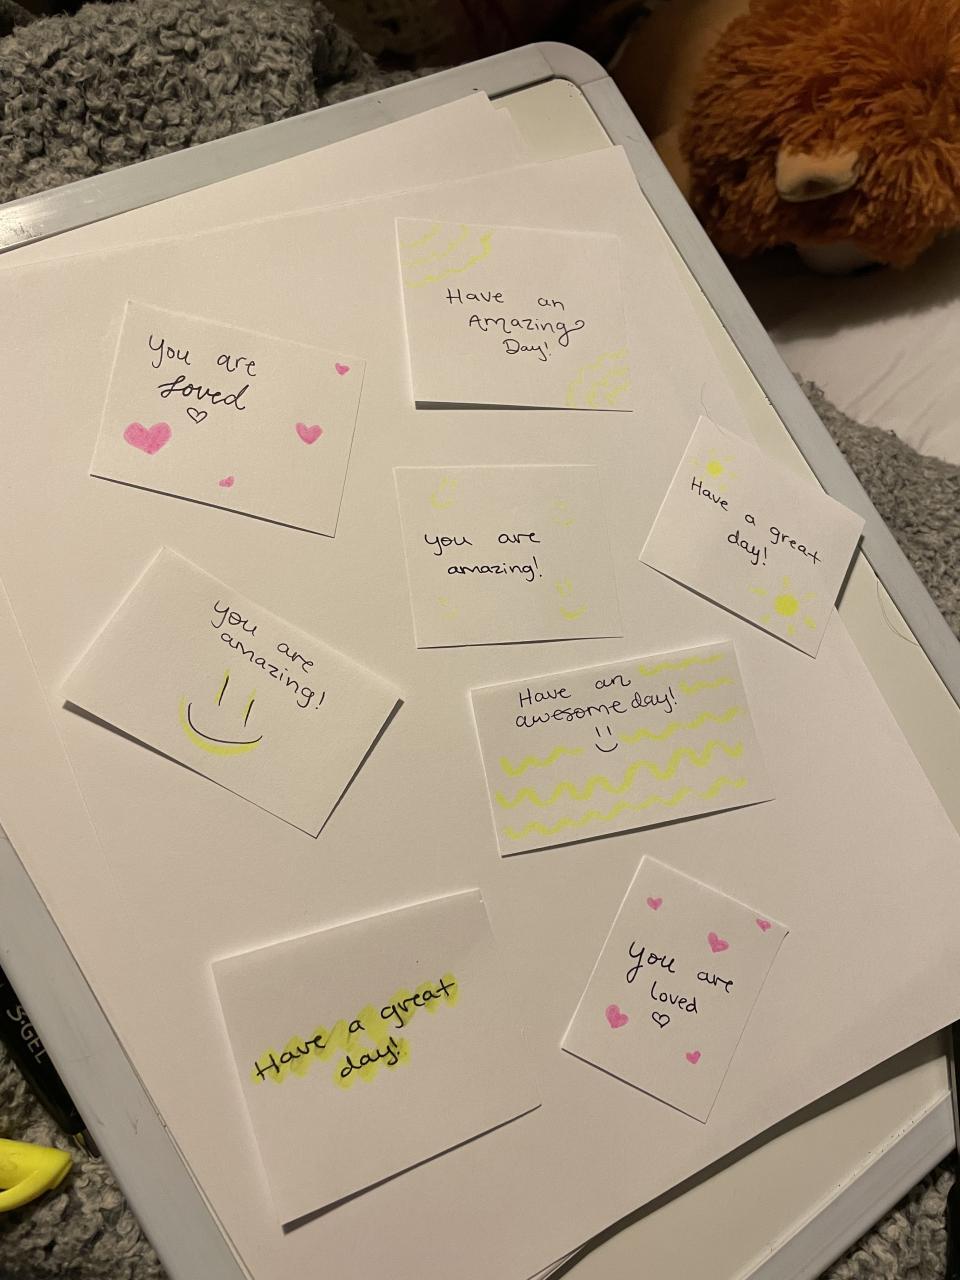 Have an
Amazing
Day!
You are
Loved
You are
amazing!
Have a great
day!
You are
amazing!
Have an
awesome day!
Have a great
day!
You are
loved
S·GEL